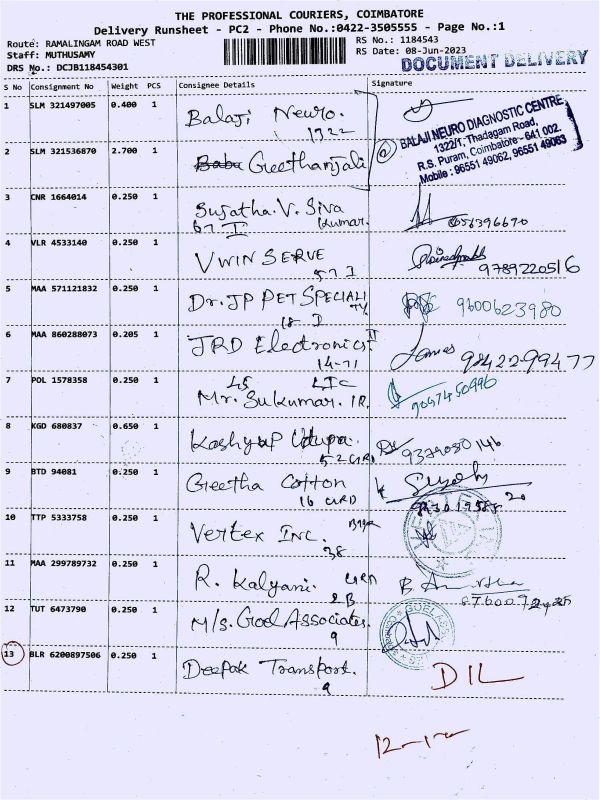 THE PROFESSIONAL COURIERS, COIMBATORE
Delivery Runsheet - PC2 - Phone No.:0422-3505555 - Page No.:1
Route: RAMALINGAM ROAD WEST
RS No.: 1184543
Staff: MUTHUSAMY
RS Date: 08-Jun-2023
DRS No.: DCJB118454301
DOCUMENT DELIVERY
S No Consignment No Weight PCS Consignee Details Signature
1 SLM 321497005 0.400 1 Balaji Neuro.
1322
BALAJI NEURO DIAGNOSTIC CENTRE
1322/1, Thadagam Road,
R.S. Puram, Coimbatore - 641 002.
Mobile : 96551 49062, 96551 49063
2 SLM 321536870 2.700 1 Geethanjali
3 CNR 1664014 0.250 1 Sujatha. V. Siva
67 I Kumar.
4 VLR 4533140 0.250 1 VWIN SERVE
57 I 9789220516
5 MAA 571121832 0.250 1 Dr. JP PET SPECIALI
TY
18 D 9600623980
6 MAA 860288073 0.205 1 JRD Electronics II
14-71 James 98422-99477
7 POL 1578358 0.250 1 45 LIC
Mr. Sukumar. IR. 9087450996
8 KGD 680837 0.650 1 Kashyap Udupa.
52 GRD 9379030146
9 BTD 94081 0.250 1 Geetha Cotton
16 GRD
10 TTP 5333758 0.250 1 Vertex Inc.
38
11 MAA 299789732 0.250 1 R. Kalyani. GRD
2 B
12 TUT 6473790 0.250 1 M/s. Goel Associates.
9
13 BLR 6200897506 0.250 1 Deepak Transport.
9 DIL